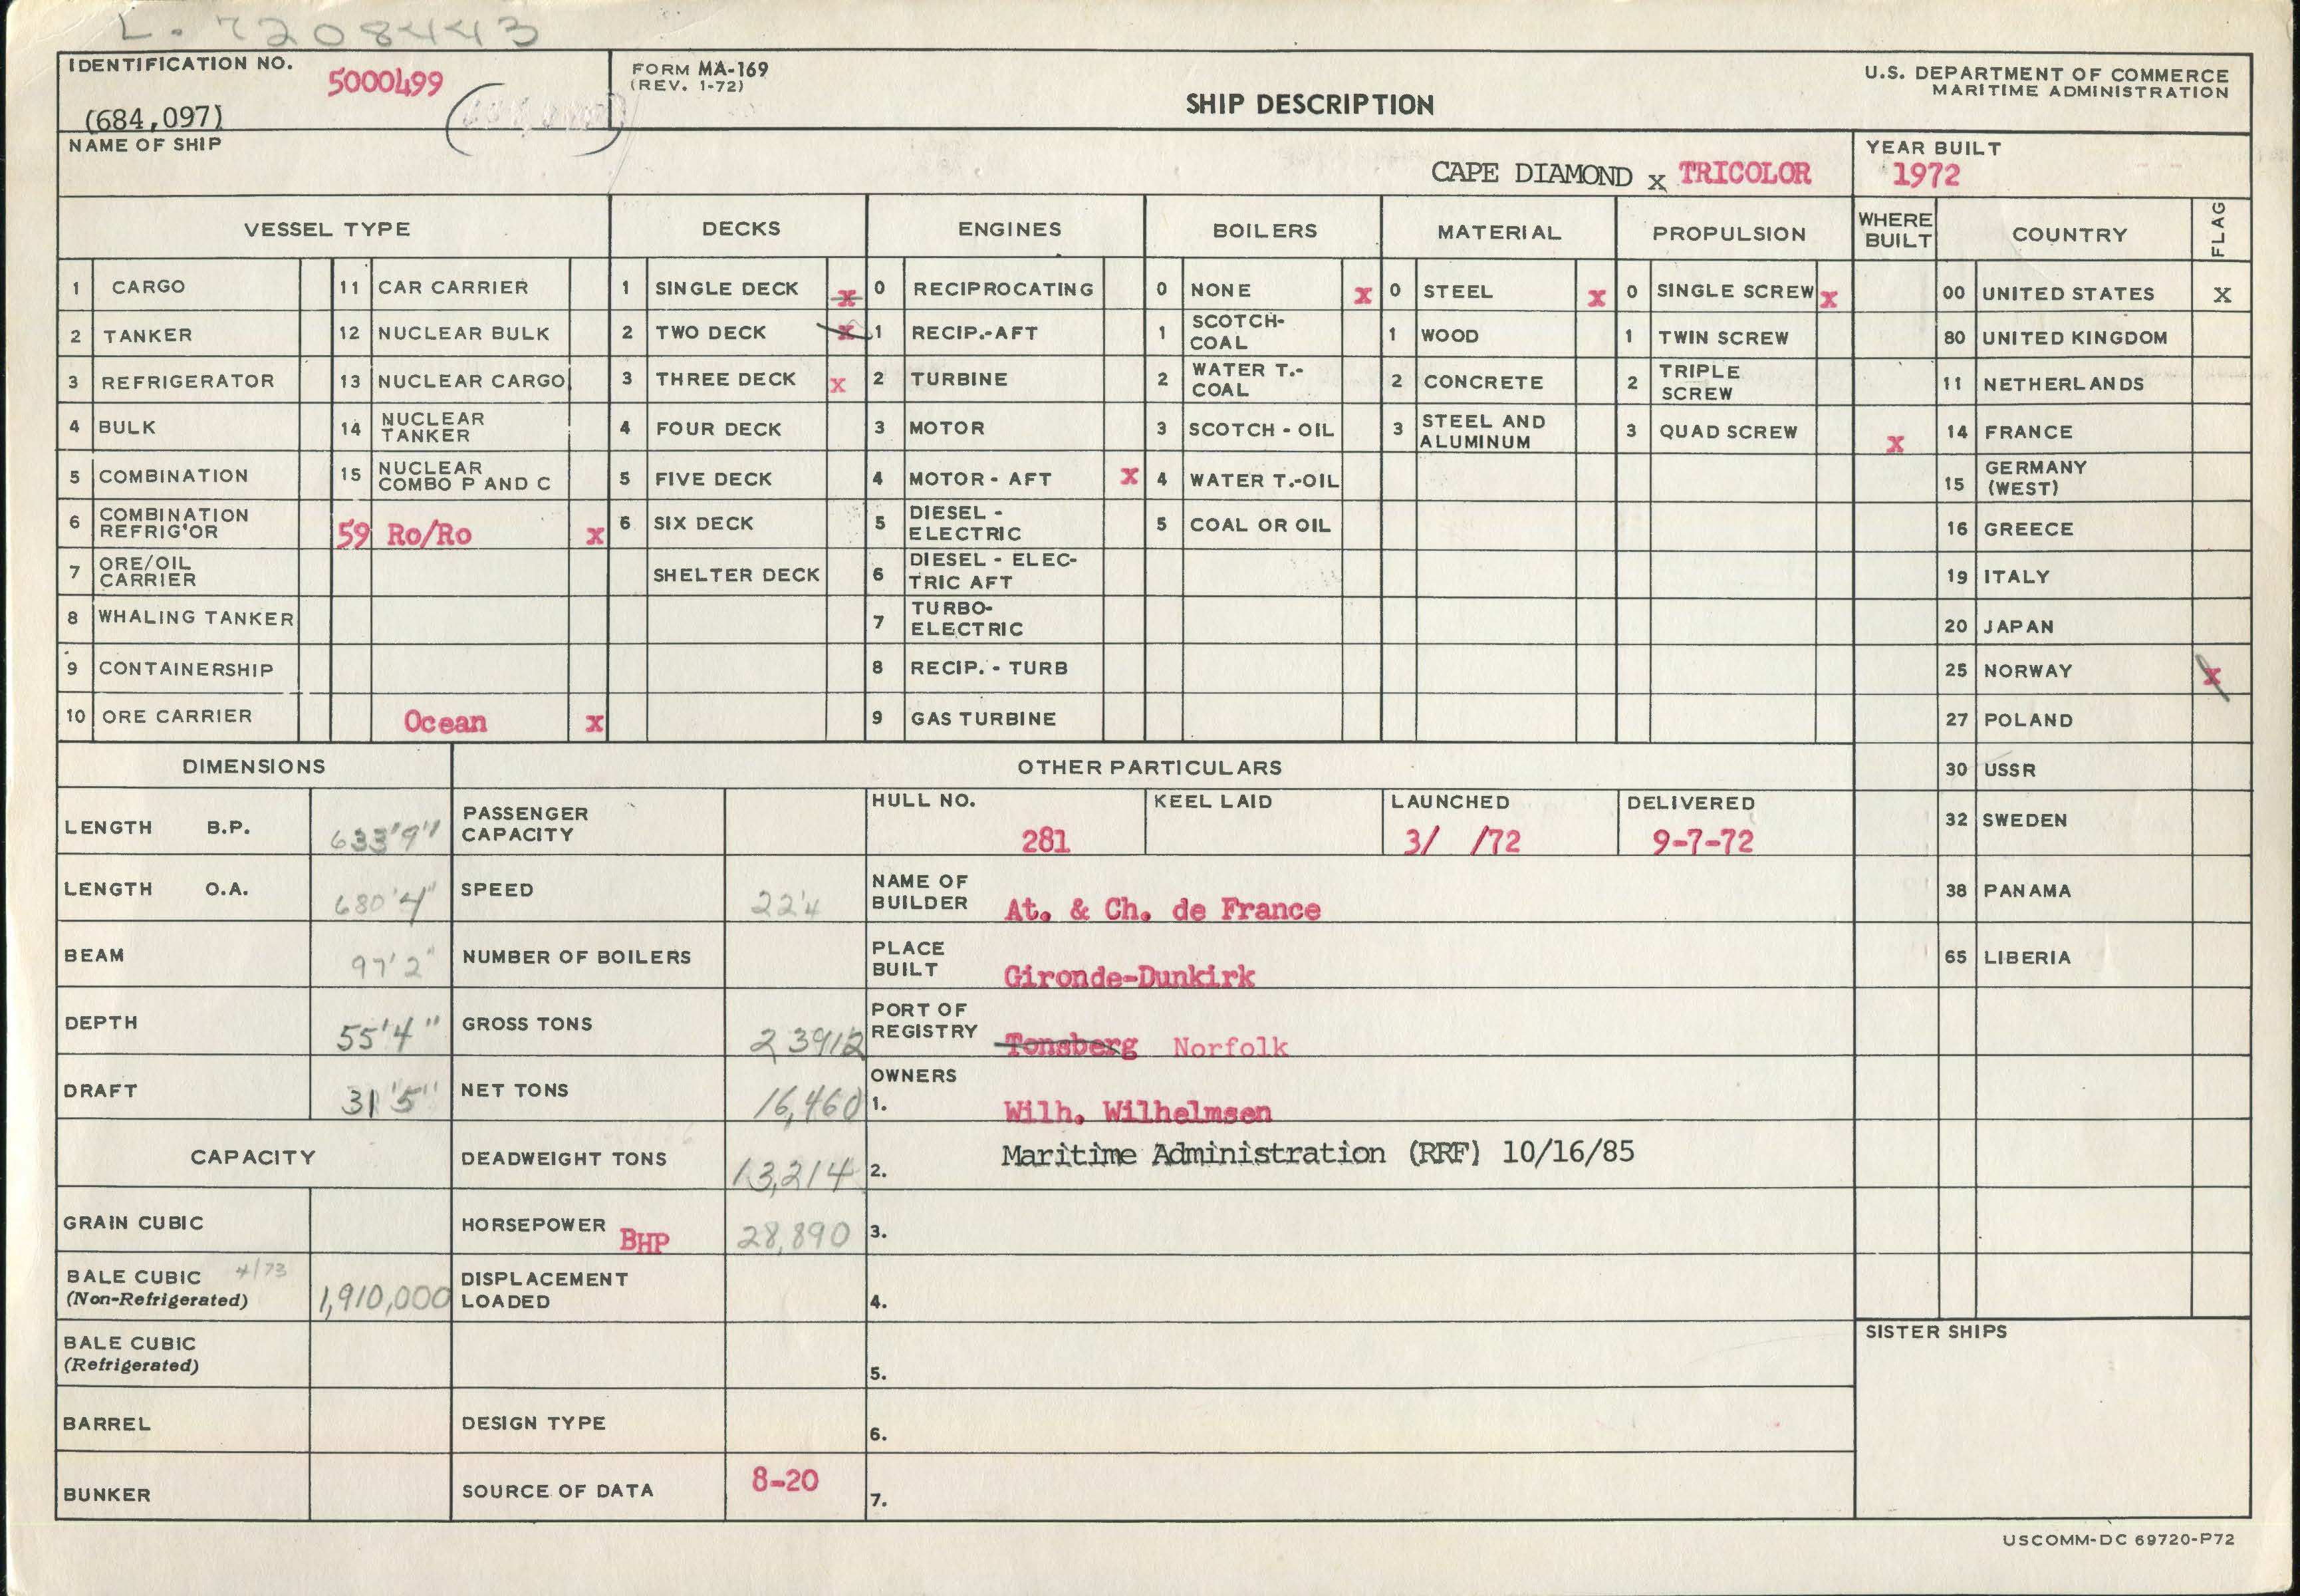 L. 7208443
IDENTIFICATION NO. 5000499
(684,097)
FORM MA-169
(REV. 1-72)
SHIP DESCRIPTION
U.S. DEPARTMENT OF COMMERCE
MARITIME ADMINISTRATION
NAME OF SHIP
CAPE DIAMOND x TRICOLOR
YEAR BUILT
1972
VESSEL TYPE DECKS ENGINES BOILERS MATERIAL PROPULSION WHERE BUILT COUNTRY FLAG
1 CARGO 11 CAR CARRIER 1 SINGLE DECK x 0 RECIPROCATING 0 NONE x 0 STEEL x 0 SINGLE SCREW x 00 UNITED STATES x
2 TANKER 12 NUCLEAR BULK 2 TWO DECK x 1 RECIP.-AFT 1 SCOTCH-COAL 1 WOOD 1 TWIN SCREW 80 UNITED KINGDOM
3 REFRIGERATOR 13 NUCLEAR CARGO 3 THREE DECK x 2 TURBINE 2 WATER T.-COAL 2 CONCRETE 2 TRIPLE SCREW 11 NETHERLANDS
4 BULK 14 NUCLEAR TANKER 4 FOUR DECK 3 MOTOR 3 SCOTCH - OIL 3 STEEL AND ALUMINUM 3 QUAD SCREW x 14 FRANCE
5 COMBINATION 15 NUCLEAR COMBO P AND C 5 FIVE DECK 4 MOTOR - AFT x 4 WATER T.-OIL 15 GERMANY (WEST)
6 COMBINATION REFRIG'OR 59 Ro/Ro x 6 SIX DECK 5 DIESEL - ELECTRIC 5 COAL OR OIL 16 GREECE
7 ORE/OIL CARRIER SHELTER DECK 6 DIESEL - ELECTRIC AFT 19 ITALY
8 WHALING TANKER 7 TURBO-ELECTRIC 20 JAPAN
9 CONTAINERSHIP 8 RECIP. - TURB 25 NORWAY x
10 ORE CARRIER Ocean x 9 GAS TURBINE 27 POLAND
DIMENSIONS OTHER PARTICULARS 30 USSR
LENGTH B.P. 633'9" PASSENGER CAPACITY HULL NO. 281 KEEL LAID LAUNCHED 3/ /72 DELIVERED 9-7-72 32 SWEDEN
LENGTH O.A. 680'4" SPEED 22.4 NAME OF BUILDER At. & Ch. de France 38 PANAMA
BEAM 97'2" NUMBER OF BOILERS PLACE BUILT Gironde-Dunkirk 65 LIBERIA
DEPTH 55'4" GROSS TONS 23912 PORT OF REGISTRY Tonsberg Norfolk
DRAFT 31'5" NET TONS 16,460 OWNERS 1. Wilh. Wilhelmsen
CAPACITY DEADWEIGHT TONS 13,214 2. Maritime Administration (RRF) 10/16/85
GRAIN CUBIC HORSEPOWER BHP 28,890 3.
BALE CUBIC 4/73 (Non-Refrigerated) 1,910,000 DISPLACEMENT LOADED 4.
BALE CUBIC (Refrigerated) 5.
SISTER SHIPS
BARREL DESIGN TYPE 6.
BUNKER SOURCE OF DATA 8-20 7.
USCOMM-DC 69720-P72